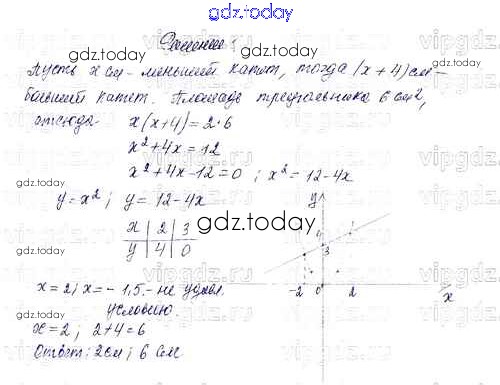 gdz.today
Решение
gdz.today
Пусть x см - меньший катет, тогда (x + 4) см -
больший катет. Площадь треугольника 6 см²,
отсюда x(x+4) = 2·6
x² + 4x = 12
x² + 4x - 12 = 0 ; x² = 12 - 4x
y = x² ; y = 12 - 4x
x | 2 | 3
y | 4 | 0
gdz.today
y
4
3
-2 0 2 x
x = 2; x = - 1,5 - не удовл.
условию.
x = 2, 2+4 = 6
Ответ: 2 см; 6 см
gdz.today